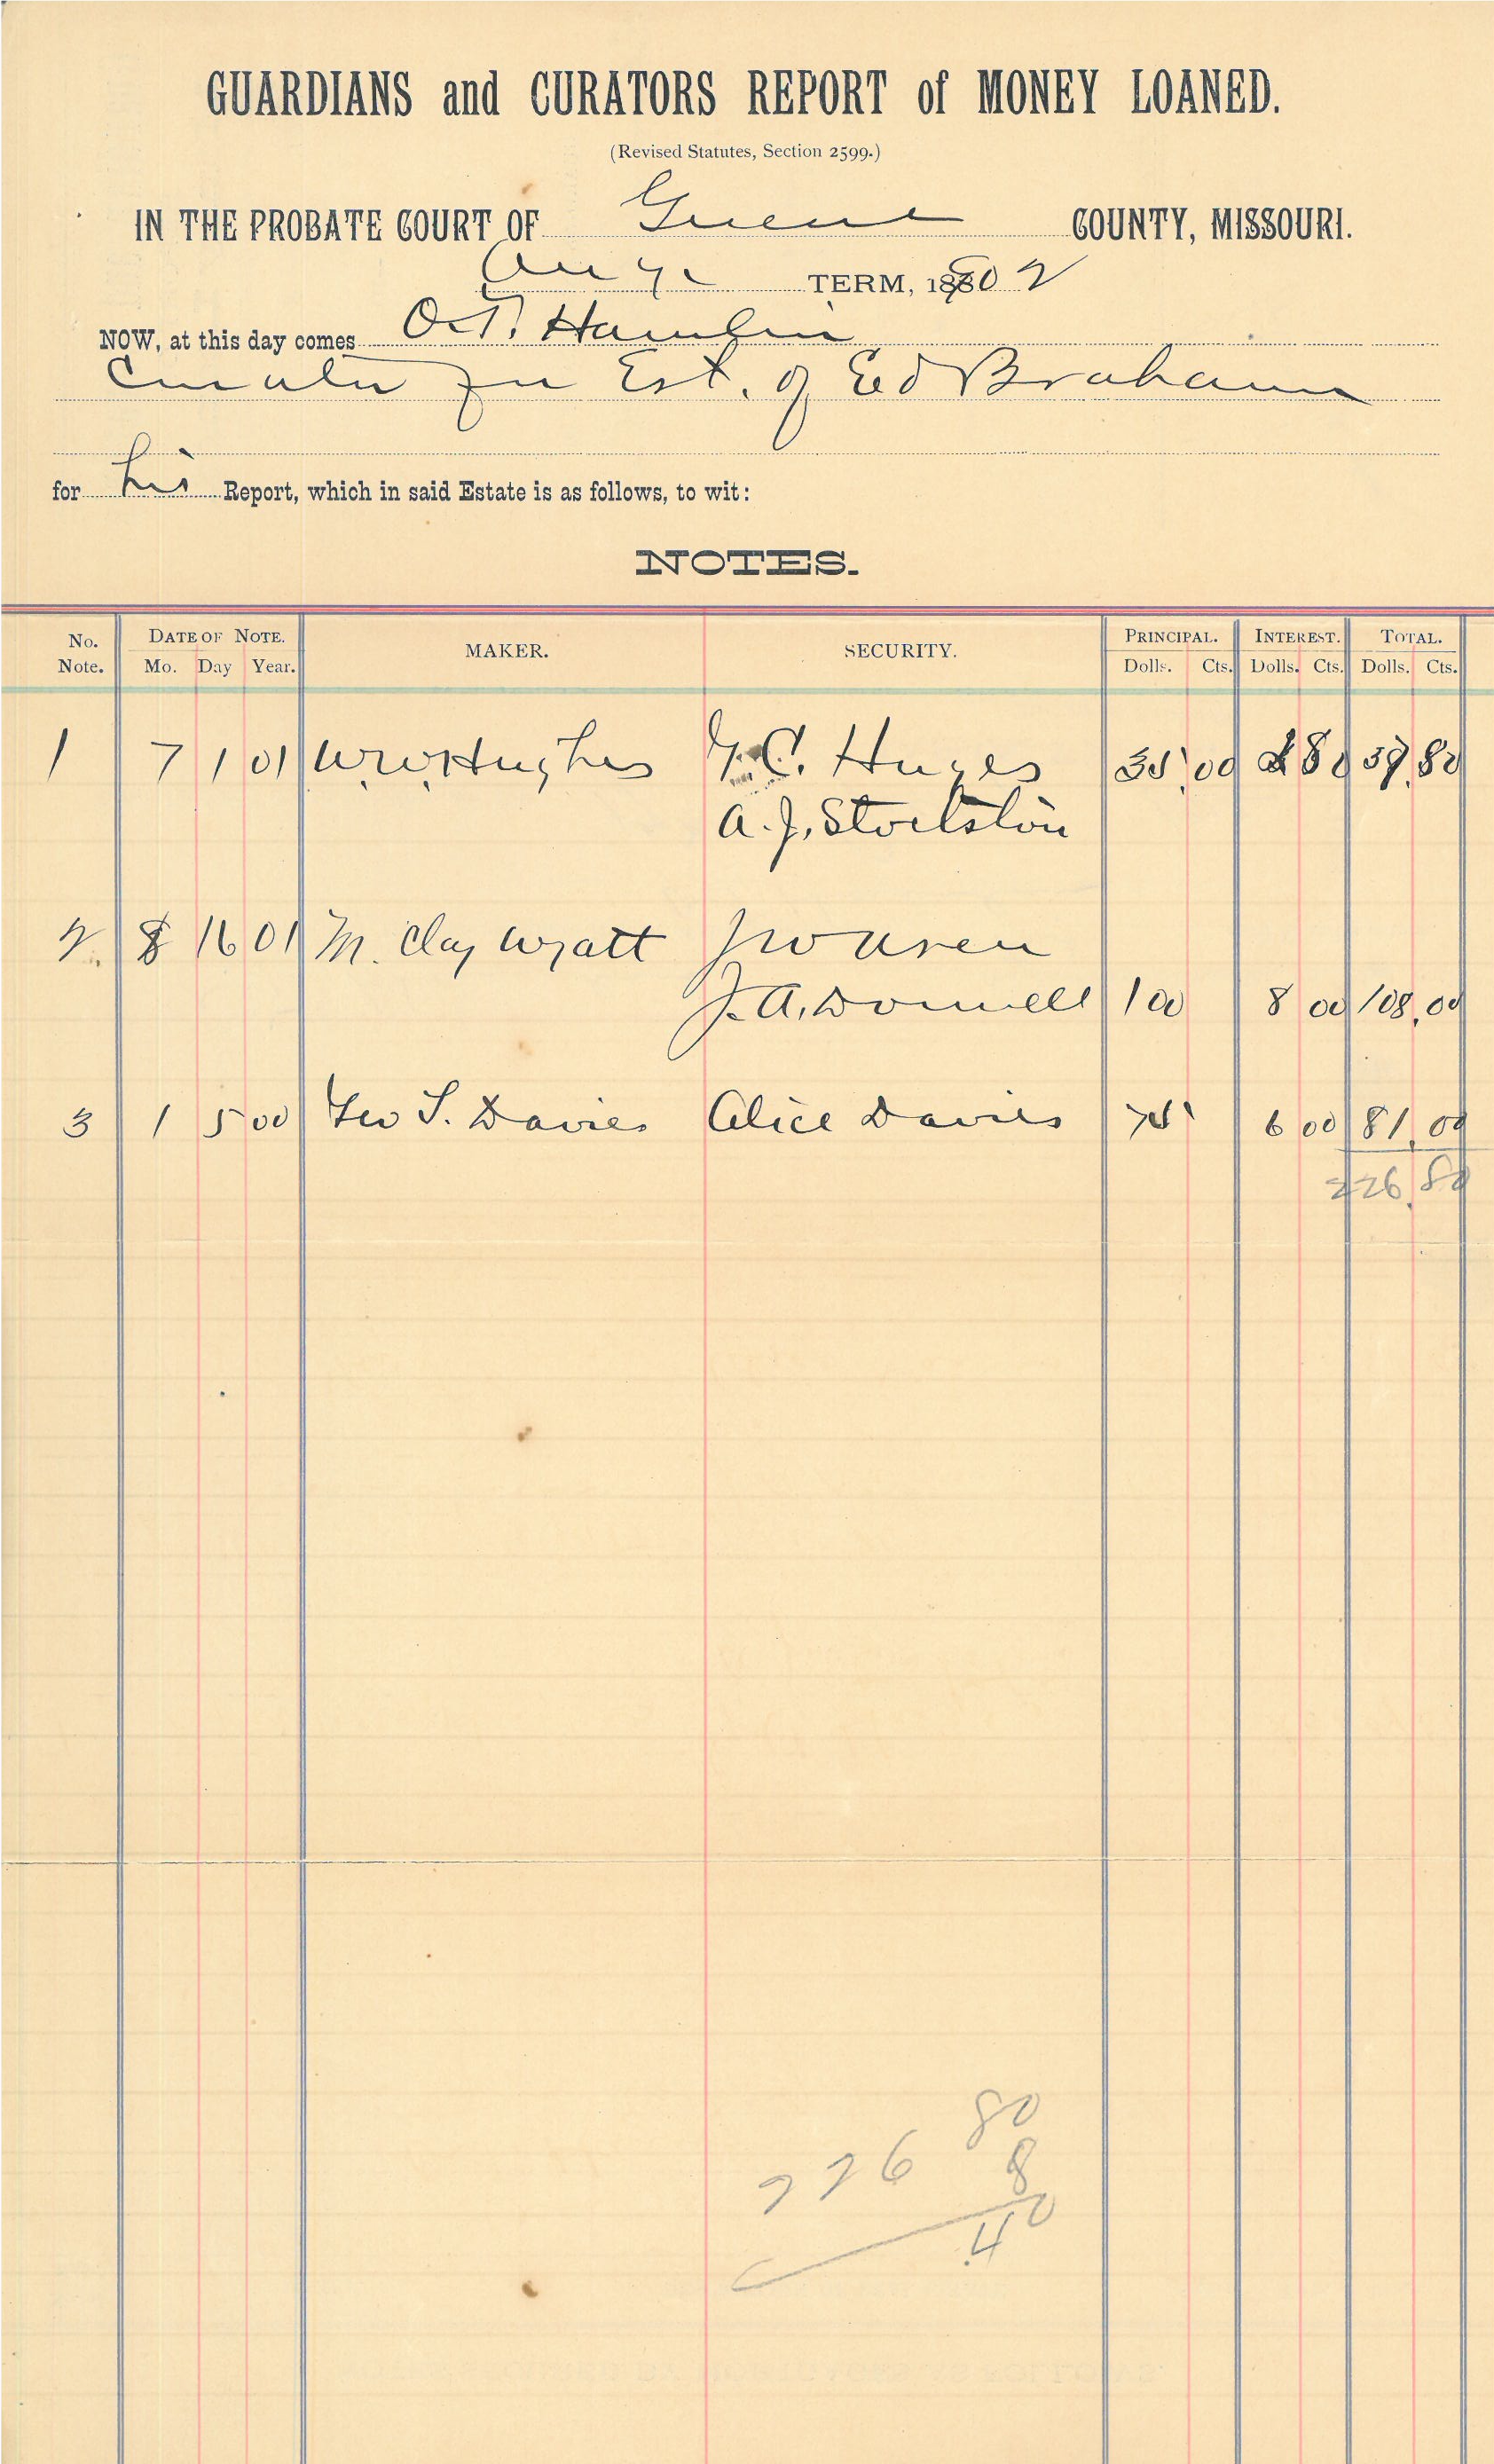 GUARDIANS and CURATORS REPORT of MONEY LOANED.
(Revised Statutes, Section 2599.)
IN THE PROBATE COURT OF Greene COUNTY, MISSOURI.
Aug TERM, 1902
NOW, at this day comes O.T. Hamlin
Curator for Est. of Ed Braham
for his Report, which in said Estate is as follows, to wit:
NOTES.
No. Note. DATE OF NOTE. Mo. Day Year. MAKER. SECURITY. PRINCIPAL. Dolls. Cts. INTEREST. Dolls. Cts. TOTAL. Dolls. Cts.
1 7 1 01 W.W. Hughes G.C. Huges 35.00 2 80 37.80
A.J. Stockston
2. 8 16 01 M. Clay Wyatt
J.A. Donnell 100 8 00 108.00
3 1 5 00 Geo T. Davies Alice Davies 75 6 00 81.00
226.80
226 80
8
.40